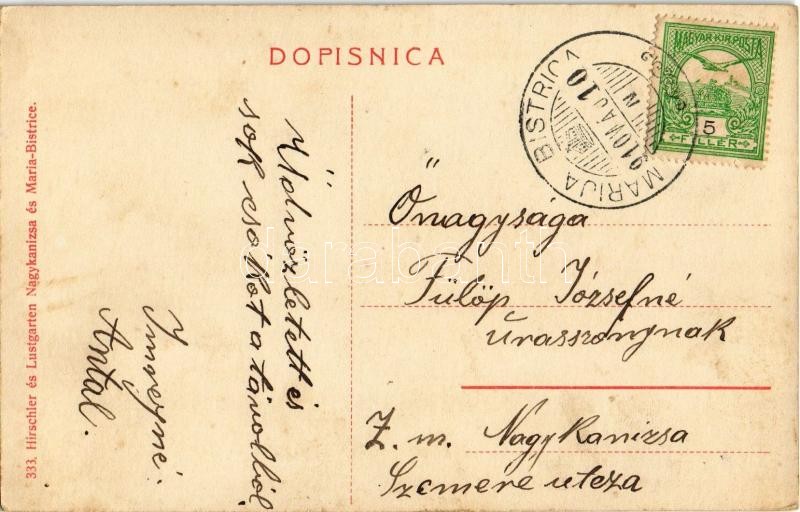 DOPISNICA
MAGYAR KIR. POSTA
5
FILLÉR
MARIJA BISTRICA
910 AUG 10
Üdvözletett és
sok csókot a távolból
Antal.
Őnagysága
Fülöp Józsefné
úrasszonynak
Z. m. Nagykanizsa
Szemere utcza
333. Hirschler és Lustgarten Nagykanizsa és Maria-Bistrice.
darabanth